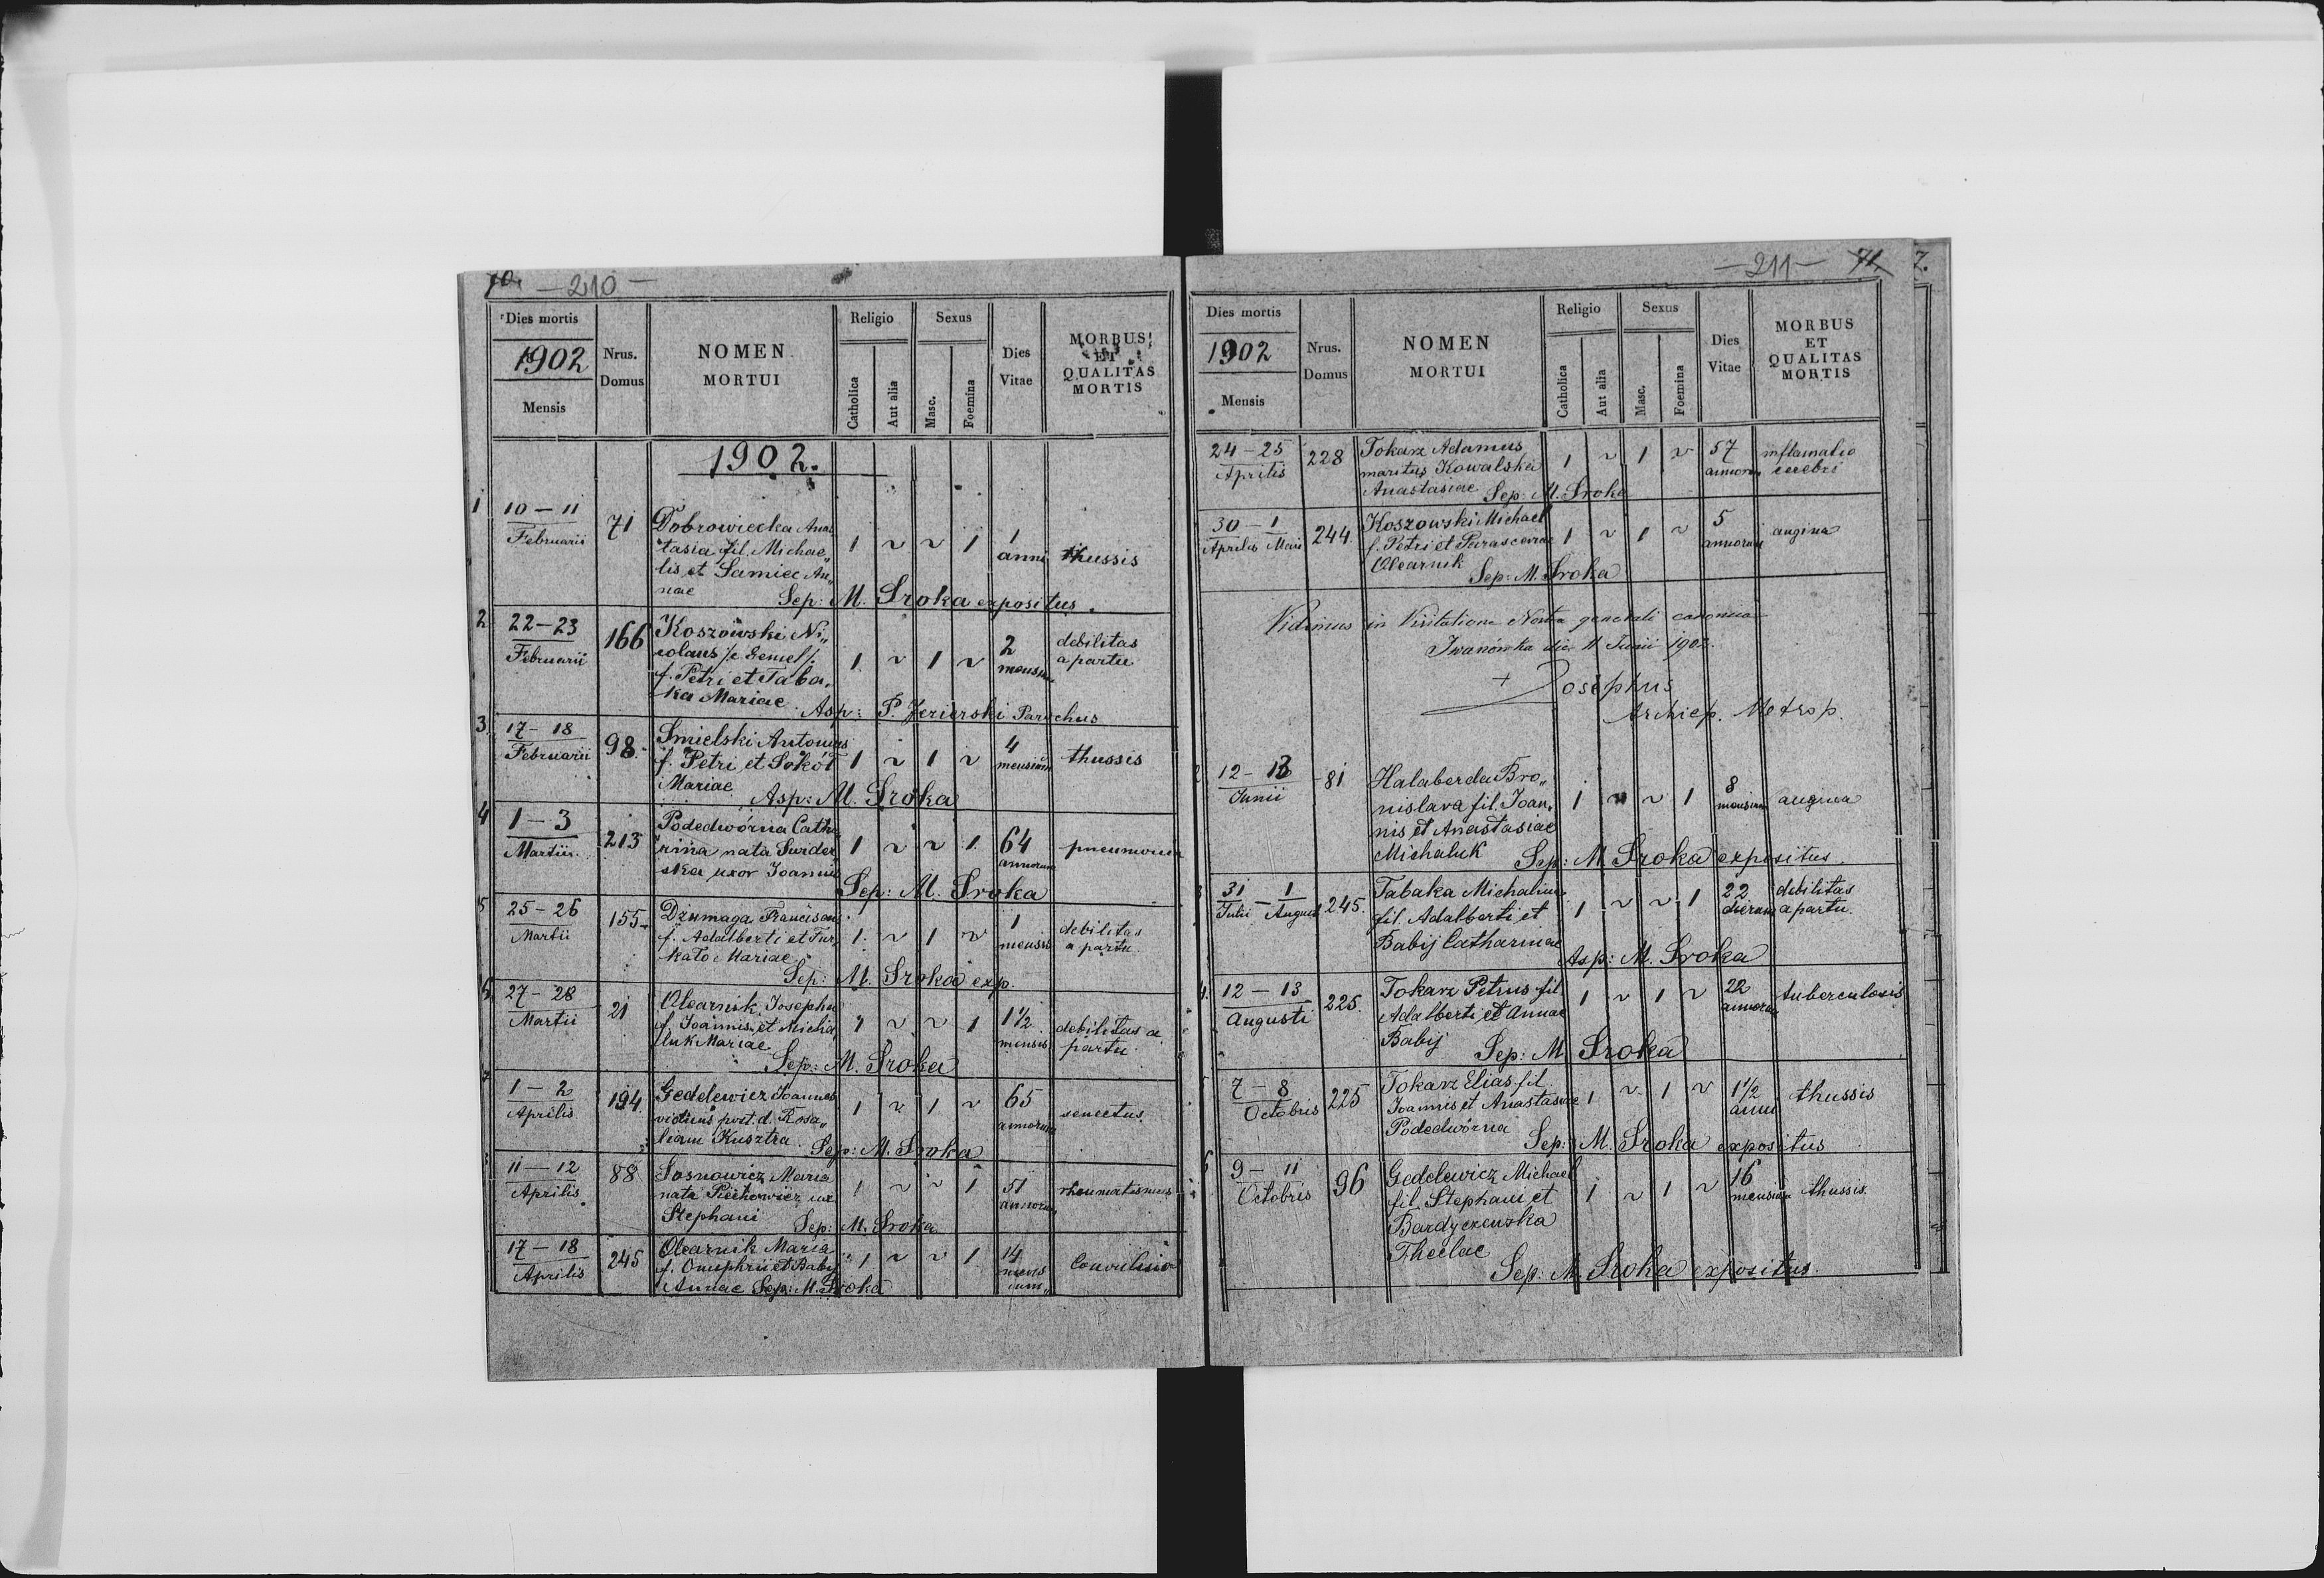 70. — 210 —
Dies mortis
1902
Mensis
Nrus.
Domus
NOMEN
MORTUI
Religio
Catholica
Aut alia
Sexus
Masc.
Foemina
Dies
Vitae
MORBUS
ET
QUALITAS
MORTIS
1902.
1
10 — 11
Februarii
71
Dobrowiecka Anas
tasia fil. Michae„
lis et Samiec An„
nae
1 ~ ~ 1
1
anni
thussis
Sep: M. Sroka expositus.
2
22 — 23
Februarii
166
Koszowski Ni„
colaus
f. Petri et Taba„
ka Mariae
1. ~ 1 ~
2
mensium
debilitas
a partu
Asp: P. Jezierski Parochus
3.
17 - 18
Februarii
98.
Smielski Antonius
f. Petri et Sokół
Mariae
1 ~ 1 ~
4
mensium
thussis
Asp: M. Sroka
4
1 — 3
Martii.
213
Podedwórna Catha
rina nata Surder
ska uxor Joannis
1 ~ ~ 1.
64
annorum
pneumonia
Sep: M. Sroka
5
25 - 26
Martii
155.
Dziumaga Franciscus
f. Adalberti et Tur„
kato Mariae
1. ~ 1 ~
1
mensis
debilitas
a partu
Sep: M. Sroka exp.
6.
27 - 28
Martii
21
Olearnik Josepha
f. Joannis et Micha
luk Mariae
1 ~ ~ 1
1 1/2
mensis
debilitas a
partu
Sep: M. Sroka
7
1 — 2
Aprilis
194.
Gedelewicz Joannes
viduus post. d. Rosa„
liam Kusztra
1 ~ 1 ~
65
annorum
senectus
Sep: M. Sroka
11 — 12
Aprilis
88
Sosnowicz Maria
nata Piechowicz ux
Stephani
1 ~ ~ 1
51
annorum
rheumatismus
Sep: M. Sroka
17 - 18
Aprilis
245
Olearnik Maria
f. Onuphrii et Babij
Annae Sep: M. Sroka
1 ~ ~ 1
14
mens
ium„
Convulsio
— 211 — 71. 7.
Dies mortis
1902
Mensis
Nrus.
Domus
NOMEN
MORTUI
Religio
Catholica
Aut alia
Sexus
Masc.
Foemina
Dies
Vitae
MORBUS
ET
QUALITAS
MORTIS
24 - 25
Aprilis
228
Tokarz Adamus
maritus Kowalska
Anastasiae
1 ~ 1 ~
57
annorum
inflamatio
cerebri
Sep: M. Sroka
30 - 1
Aprilis Maii
244.
Koszowski Michael
f. Petri et Parascevae
Olearnik
1 ~ 1 ~
5
annorum
angina
Sep: M. Sroka
Vidimus in Visitatione Nostra generali canonica
Iwanówka die 11 Junii 1902.
+ Josephus
Archiep. Metrop.
2
12 - 13
Junii
81
Halaberda Bro„
nislava fil. Joan„
nis et Anastasiae
Michaluk
1 ~ ~ 1
8
mensium
angina
Sep: M. Sroka expositus.
3
31 — 1
Julii August
245.
Tabaka Michalina
fil. Adalberti et
Babij Catharinae
1 ~ ~ 1
22
dierum
debilitas
a partu.
Asp: M. Sroka
4.
12 — 13
Augusti
225.
Tokarz Petrus fil.
Adalberti et Annae
Babij
1 ~ 1 ~
22
annorum
tuberculosis
Sep: M. Sroka
5
7 — 8
Octobris
225
Tokarz Elias fil
Joannis et Anastasiae
Podedwórna
1 ~ 1 ~
1 1/2
anni
thussis
Sep: M. Sroka expositus
6
9 — 11
Octobris
96
Gedelewicz Michael
fil. Stephani et
Bardyczewska
Theclae
1 ~ 1 ~
16
mensium
thussis.
Sep: M. Sroka expositus.